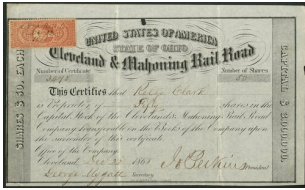 UNITED STATES OF AMERICA
STATE OF OHIO
Cleveland & Mahoning Rail Road
Number of Certificate
Number of Shares
This Certifies that
is Proprietor of Fifty shares in the
Capital Stock of the Cleveland & Mahoning Rail Road
Company transferable on the Books of the Company upon
the surrender of this certificate.
Office of the Company
Cleveland, Dec 186
President
George Secretary
SHARES $50. EACH
CAPITAL $